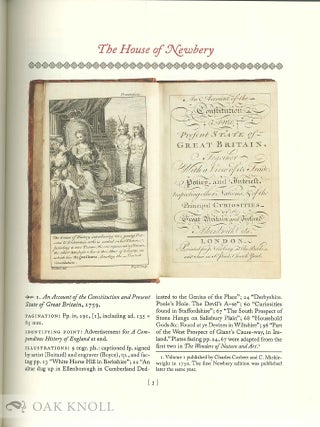 The House of Newbery
An Account of the
Constitution
and
Present STATE of
GREAT BRITAIN,
Together
With a View of its Trade,
Policy, and Interest,
Respecting other Nations, & of the
Principal CURIOSITIES
of
Great Britain and Ireland
LONDON.
1. An Account of the Constitution and Present
State of Great Britain, 1759.
PAGINATION: Pp. iv, 291, [1], including ad. 135 ×
85 mm.
IDENTIFYING POINT: Advertisement for A Com-
pendious History of England at end.
ILLUSTRATIONS: 9 engr. pls.: captioned fp. signed
by artist (Boitard) and engraver (Boyce), 151, and fac-
ing pp. 13 "White Horse Hill in Berkshire"; 22 "An
altar dug up in Ellenborough in Cumberland Ded-
icated to the Genius of the Place"; 24 "Derbyshire.
Poole's Hole. The Devil's A–se"; 60 "Curiosities
found in Staffordshire" 67 "The South Prospect of
Stone Henge on Salisbury Plain"; 68 "Household
Gods &c. Found at ye Devizes in Wiltshire"; 96 "Part
of the West Prospect of Giant's Cause-way, in Ire-
land." Plates facing pp. 24, 67 were adapted from the
first two in The Wonders of Nature and Art.¹
1. Volume 1 published by Charles Corbett and C. Mickle-
wright in 1750. The first Newbery edition was published
later the same year.
[ 3 ]
© OAK KNOLL